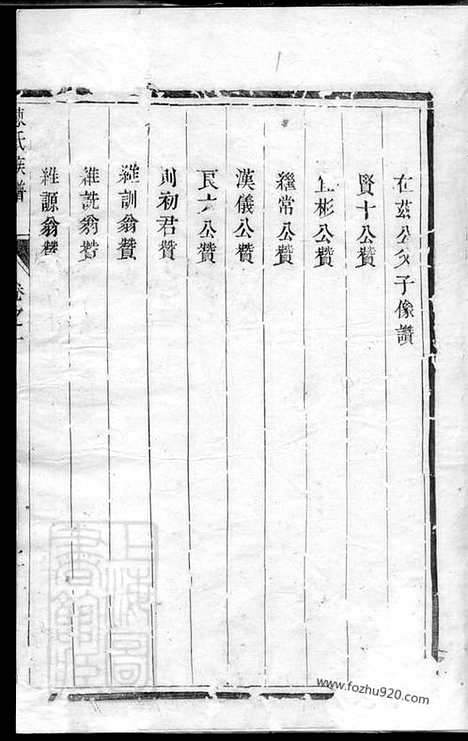 在茲公父子像讚
賢十公贊
彬公贊
繼常公贊
漢儀公贊
良六公贊
則初君贊
維訓翁贊
維詵翁贊
維源翁贊
陳氏族譜
卷之一
上海圖書館藏
www.fozhu920.com